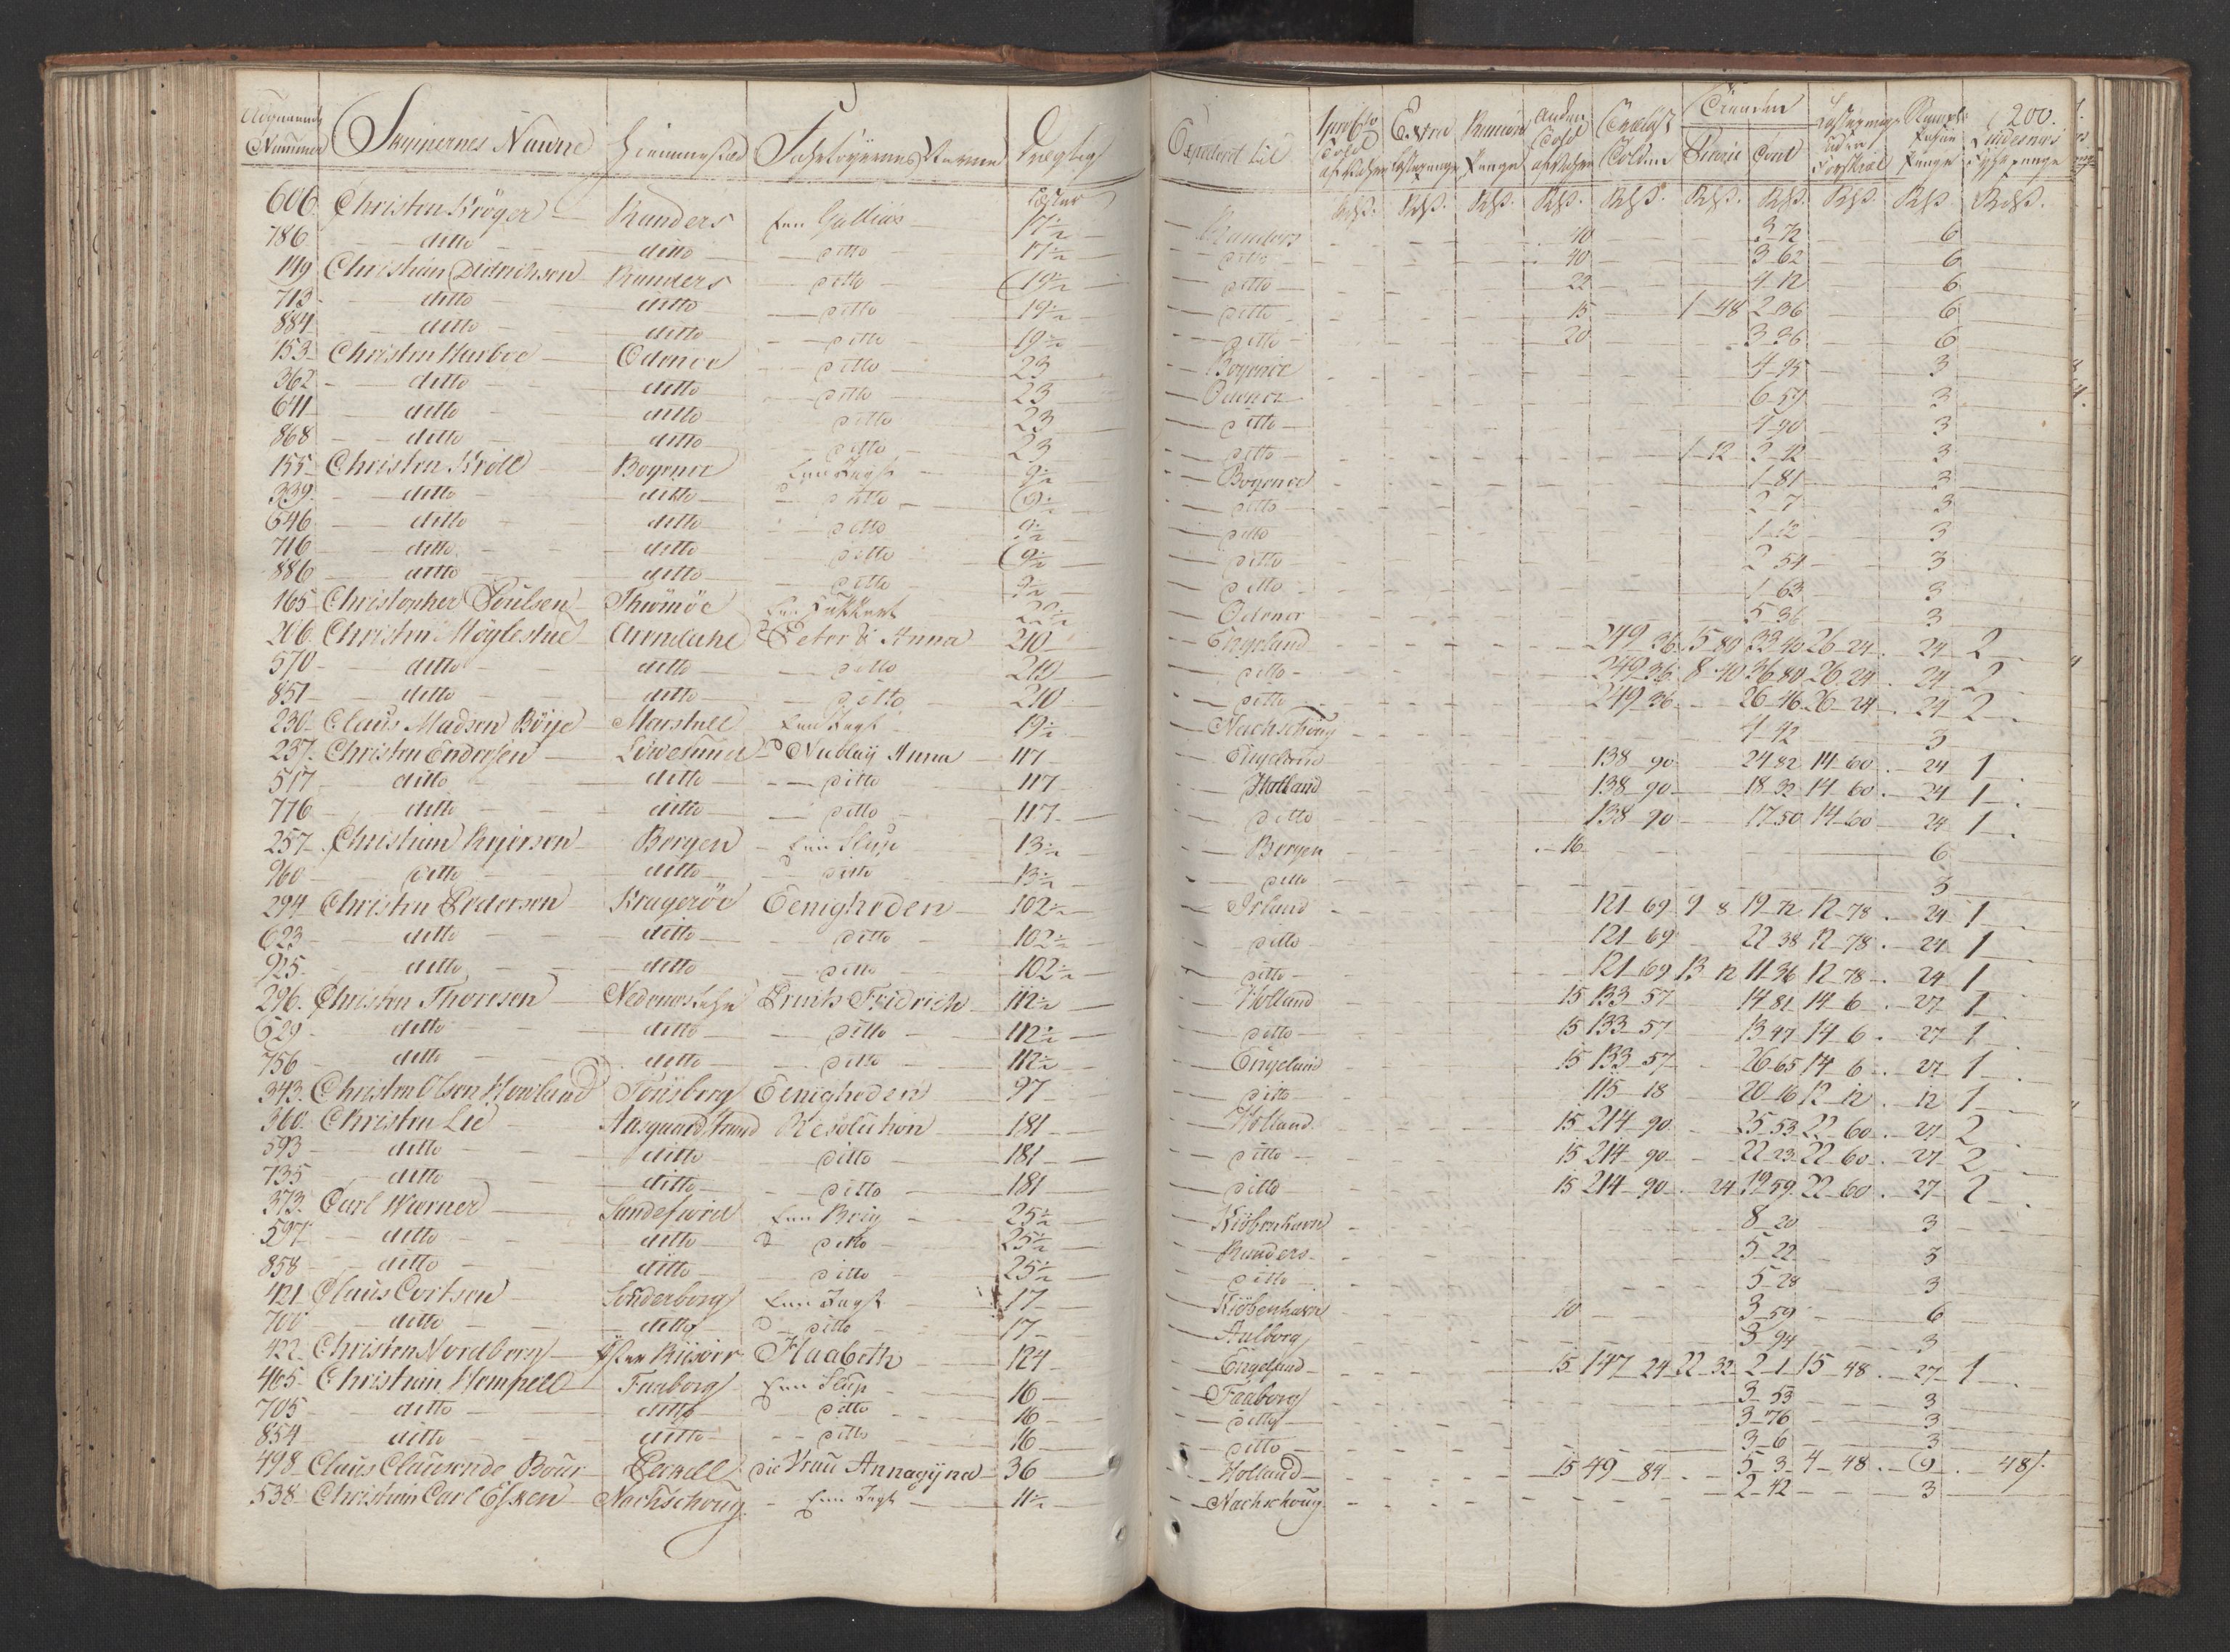 200.
Udgaaende Nummer Skippernes Navne Hiemmestæd Fartøyernes Navne Drægtig Expederet til
Læster
606 Christen Krøger Randers Een Gallias 17½ Randers 40 3 72 6
786 ditto ditto ditto 17½ ditto 40 3 62 6
149 Christian Didrichsen Randers ditto 19½ ditto 22 4 12 6
713 ditto ditto ditto 19½ ditto 15 1 48 2 36 6
884 ditto ditto ditto 19½ ditto 20 3 36 6
153 Christen Harboe Odense ditto 23 Bogense 4 95 3
362 ditto ditto ditto 23 Odense 6 57 3
641 ditto ditto ditto 23 ditto 4 90 3
868 ditto ditto ditto 23 ditto 1 12 3 42 3
155 Christen Krôll Bogense Een Jagt 9½ Bogense 1 81 3
339 ditto ditto ditto 9½ ditto 2 7 3
646 ditto ditto ditto 9½ ditto 1 12 3
716 ditto ditto ditto 9½ ditto 2 54 3
886 ditto ditto ditto 9½ ditto 1 63 3
165 Christopher Poulsen Thurøe 22½ Odense 5 36 3
206 Christen Møglestue Arendahl Peter & Anna 210 Engeland 249 36 15 80 33 40 26 24 24 2
570 ditto ditto ditto 210 ditto 249 36 8 40 36 80 26 24 24 2
851 ditto ditto ditto 210 ditto 249 36 26 46 26 24 24 2
230 Claus Madsen Böye Marstall Een Jagt 19½ Nachschoug 4 42 3
237 Christen Endersen Löwesund Nublaÿ Anna 117 Engeland 138 90 24 82 14 60 24 1
517 ditto ditto ditto 117 Holland 138 90 18 32 14 60 24 1
776 ditto ditto ditto 117 ditto 138 90 17 50 14 60 24 1
257 Christian Bergen Een Slup 13½ Bergen 16 6
960 ditto ditto ditto 13½ ditto 3
294 Christen Pedersen Kragerøe Eenigheden 102½ Irland 121 69 9 8 19 72 12 78 24 1
623 ditto ditto ditto 102½ ditto 121 69 22 38 12 78 24 1
925 ditto ditto ditto 102½ ditto 121 69 13 12 11 36 12 78 24 1
296 Christen Thorsen Prinds Fridrich 112½ Holland 15 133 57 14 81 14 6 27 1
529 ditto ditto ditto 112½ ditto 15 133 57 13 47 14 6 27 1
756 ditto ditto ditto 112½ Engeland 15 133 57 26 65 14 6 27 1
343 Christen Olsen Howland Tönsberg Eenigheden 97 ditto 115 18 20 16 12 12 12 1
360 Christen Lie Aasgaardstrand Resolution 181 Holland 15 214 90 25 53 22 60 27 2
593 ditto ditto ditto 181 ditto 15 214 90 22 23 22 60 27 2
735 ditto ditto ditto 181 ditto 15 214 90 24 19 59 22 60 27 2
373 Carl Werner Sandefiord Een Brig 25½ Kiöbenhavn 8 20 3
597 ditto ditto ditto 25½ Randers 5 22 3
858 ditto ditto ditto 25½ ditto 5 28 3
421 Claus Cortsen Sönderborg Een Jagt 17 Kiöbenhavn 10 3 59 6
700 ditto ditto ditto 17 Aalborg 3 94 3
422 Christen Nordberg Öster Riisöer Haabeth 124 Engeland 15 147 24 22 32 2 1 15 48 27 1
465 Christian Hempell Faaborg Een Slup 16 Faaborg 3 53 3
705 ditto ditto ditto 16 ditto 3 76 3
854 ditto ditto ditto 16 ditto 3 6 3
498 Claus Clausende Bour Die Vrau Annagyna 36 Holland 15 49 84 5 3 4 48 9 48
538 Christian Carl Esken Nachschoug Een Jagt 11½ Nachschoug 2 42 3